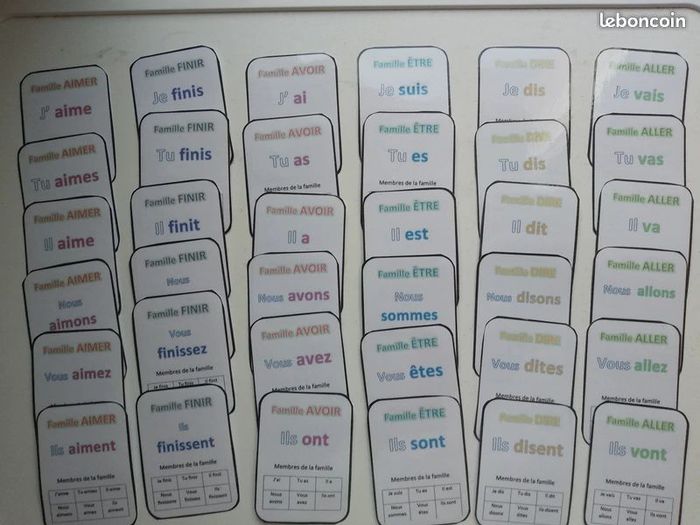 leboncoin
Famille AIMER
J' aime
Famille AIMER
Tu aimes
Famille AIMER
Il aime
Famille AIMER
Nous
aimons
Famille AIMER
Vous aimez
Famille AIMER
Ils aiment
Membres de la famille
J'aime Tu aimes Il aime
Nous aimons Vous aimez Ils aiment
Famille FINIR
Je finis
Famille FINIR
Tu finis
Famille FINIR
Il finit
Famille FINIR
Nous
Famille FINIR
Vous
finissez
Membres de la famille
Je finis Tu finis Il finit
Famille FINIR
Ils
finissent
Membres de la famille
Je finis Tu finis Il finit
Nous finissons Vous finissez Ils finissent
Famille AVOIR
J' ai
Famille AVOIR
Tu as
Membres de la famille
Famille AVOIR
Il a
Famille AVOIR
Nous avons
Famille AVOIR
Vous avez
Membres de la famille
Famille AVOIR
Ils ont
Membres de la famille
J'ai Tu as Il a
Nous avons Vous avez Ils ont
Famille ÊTRE
Je suis
Famille ÊTRE
Tu es
Membres de la famille
Famille ÊTRE
Il est
Famille ÊTRE
Nous
sommes
Famille ÊTRE
Vous êtes
Famille ÊTRE
Ils sont
Membres de la famille
Je suis Tu es Il est
Nous sommes Vous êtes Ils sont
Famille DIRE
Je dis
Famille DIRE
Tu dis
Famille DIRE
Il dit
Famille DIRE
Nous disons
Famille DIRE
Vous dites
Famille DIRE
Ils disent
Membres de la famille
Je dis Tu dis Il dit
Nous disons Vous dites Ils disent
Famille ALLER
Je vais
Famille ALLER
Tu vas
Famille ALLER
Il va
Famille ALLER
Nous allons
Famille ALLER
Vous allez
Famille ALLER
Ils vont
Membres de la famille
Je vais Tu vas Il va
Ils vont